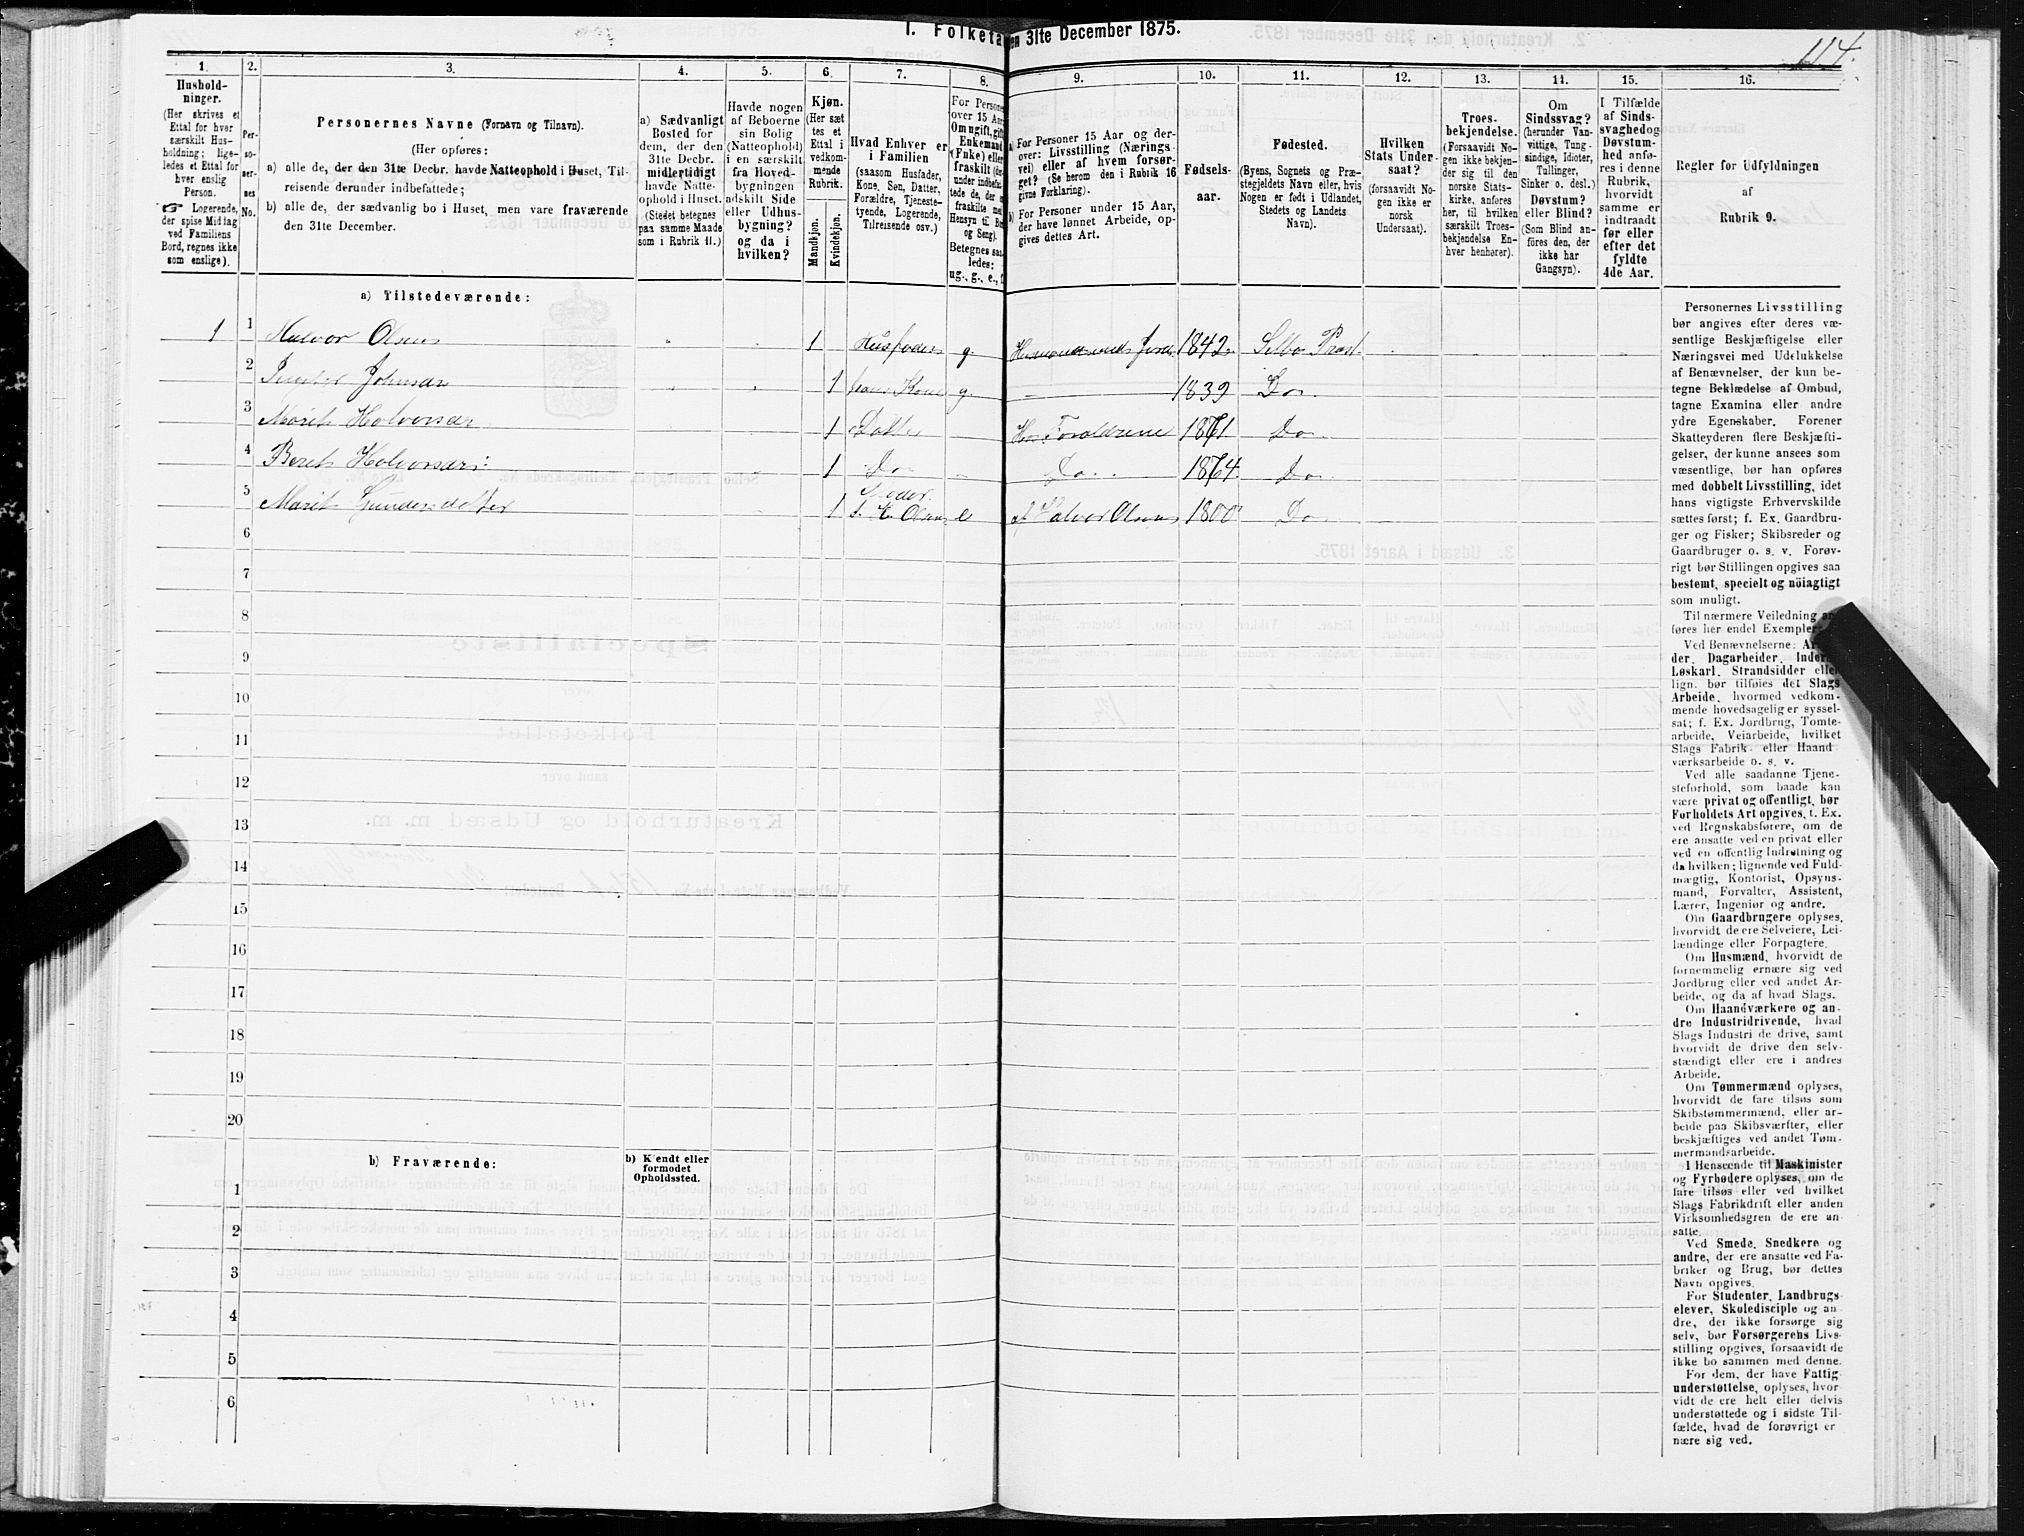 114.
1. Folketa en 31te December 1875.
1.
Hushold-
ninger.
(Her skrives et
Ettal for hver
særskilt Hus-
holdning; lige-
ledes et Ettal for
hver enslig
Person.
☞ Logerende,
der spise Middag
ved Familiens
Bord, regnes ikke
som enslige).
2.
Per-
so-
ner-
nes
No.
3.
Personernes Navne (Fornavn og Tilnavn).
(Her opføres:
a) alle de, der den 31te Decbr. havde Natteophold i Huset, Til-
reisende derunder indbefattede;
b) alle de, der sædvanlig bo i Huset, men vare fraværende
den 31te December.
4.
a) Sædvanligt
Bosted for
dem, der den
31te Decbr.
midlertidigt
havde Natte-
ophold i Huset.
(Stedet betegnes
paa samme Maade
som i Rubrik 11.)
5.
Havde nogen
af Beboerne
sin Bolig
(Natteophold)
i en særskilt
fra Hoved-
bygningen
adskilt Side
eller Udhus-
bygning?
og da i
hvilken?
6.
Kjøn.
(Her sæt
tes et
Ettal i
vedkom-
mende
Rubrik.
Mandkjøn.
Kvindekjøn.
7.
Hvad Enhver er
i Familien
(saasom Husfader,
Kone, Søn, Datter,
Forældre, Tjeneste-
tyende, Logerende,
Tilreisende osv.)
8.
For Persone
over 15 Aar
Om ugift, gift
Enkemand
(Enke) eller
fraskilt
under indbefat
tede de, der
fraskilte m
Hensyn til B
og Seng).
Betegnes saa
ledes:
ug., g., e.,
9.
a) For Personer 15 Aar og der-
over: Livsstilling (Nærings-
vei) eller af hvem forsør-
get? (Se herom den i Rubrik 16
givne Forklaring).
b) For Personer under 15 Aar,
der have lønnet Arbeide, op-
gives dettes Art.
10.
Fødsels-
aar.
11.
Fødested.
(Byens, Sognets og Præ-
stegjeldets Navn eller, hvis
Nogen er født i Udlandet,
Stedets og Landets
Navn).
12.
Hvilken
Stats Under-
saat?
(forsaavidt No-
gen ikke er
norsk
Undersaat).
13.
Troes-
bekjendelse.
(Forsaavidt No-
gen ikke bekjen-
der sig til den
norske Stats-
kirke, anføres
her, til hvilken
særskilt Troes-
bekjendelse En-
hver henhører).
14.
Om
Sindssvag?
(herunder Van-
vittige, Tung-
sindige, Idioter,
Tullinger,
Sinker o. desl.)
Døvstum?
eller Blind?
(Som Blind an-
føres den, der
ikke har
Gangsyn).
15.
I Tilfælde
af Sinds-
svaghed og
Døvstum-
hed anfø-
res i denne
Rubrik,
hvorvidt
samme er
indtraadt
før eller
efter det
fyldte
4de Aar.
16.
Regler for Udfyldningen
af
Rubrik 9.
a) Tilstedeværende:
1 1 Halvor Olsen 1 Husfader g. Husmand med Jord 1842. Selbo Præst.
2 Johnsen 1 hans Kone g. 1839 Do
3 Marit Halvorsen 1 Datter Hos Forældrene 1861 Do.
4 Beret Halvorsen: 1 Do Do. 1864. Do
Moder
5 Marit Gundersdatter 1 Olsen e af Halvor Olsen 1800 Do
6
7
8
9
10
11
12
13
14
15
16
17
18
19
20
b) Fraværende:
b) Kjendt eller
formodet
Opholdssted.
1
2
3
4
5
6
Personernes Livsstilling
bør angives efter deres væ-
sentlige Beskjæftigelse eller
Næringsvei med Udelukkelse
af Benævnelser, der kun be-
tegne Beklædelse af Ombud,
tagne Examina eller andre
ydre Egenskaber. Forener
Skatteyderen flere Beskjæfti-
gelser, der kunne ansees som
væsentlige, bør han opføres
med dobbelt Livsstilling, idet
hans vigtigste Erhvervskilde
sættes først; f. Ex. Gaardbru-
ger og Fisker; Skibsreder og
Gaardbruger o. s. v. Forøv-
rigt bør Stillingen opgives saa
bestemt, specielt og nöiagtigt
som muligt.
Til nærmere Veiledning an-
føres her endel Exempler:
Ved Benævnelserne: Ar
der, Dagarbeider, Inder
Løskarl, Strandsidder eller
lign. bør tilføies det Slags
Arbeide, hvormed vedkom-
mende hovedsagelig er syssel-
sat; f. Ex. Jordbrug, Tomte-
arbeide, Veiarbeide, hvilket
Slags Fabrik- eller Haand
værksarbeide o. s. v.
Ved alle saadanne Tjene-
steforhold, som baade kan
være privat og offentligt, bør
Forholdets Art opgives, t. Ex.
ved Regnskabsførere, om de
ere ansatte ved en privat eller
ved en offentlig Indretning og
da hvilken; lignende ved Fuld-
mægtig, Kontorist, Opsyns-
mand, Forvalter, Assistent,
Lærer, Ingeniør og andre.
Om Gaardbrugere oplyses,
hvorvidt de ere Selveiere, Lei-
lændinge eller Forpagtere.
Om Husmænd, hvorvidt de
fornemmelig ernære sig ved
Jordbrug eller ved andet Ar-
beide, og da af hvad Slags.
Om Haandværkere og an-
dre Industridrivende, hvad
Slags Industri de drive, samt
hvorvidt de drive den selv-
stændigt eller ere i andres
Arbeide.
Om Tømmermænd oplyses,
hvorvidt de fare tilsøs som
Skibstømmermænd, eller ar-
beide paa Skibsværfter, eller
beskjæftiges ved andet Tøm-
mermandsarbeide.
I Henseende til Maskinister
og Fyrbødere oplyses, om de
fare tilsøs eller ved hvilket
Slags Fabrikdrift eller anden
Virksomhedsgren de ere an-
satte.
Ved Smede, Snedkere og
andre, der ere ansatte ved Fa-
briker og Brug, bør dettes
Navn opgives.
For Studenter, Landbrugs-
elever, Skoledisciple og an-
dre, der ikke forsørge sig
selv, bør Forsørgerens Livs-
stilling opgives, forsaavidt de
ikke bo sammen med denne.
For dem, der have Fattig-
understøttelse, oplyses, hvor-
vidt de ere helt eller delvis
understøttede og i sidste Til-
fælde, hvad de forøvrigt er
nære sig ved.